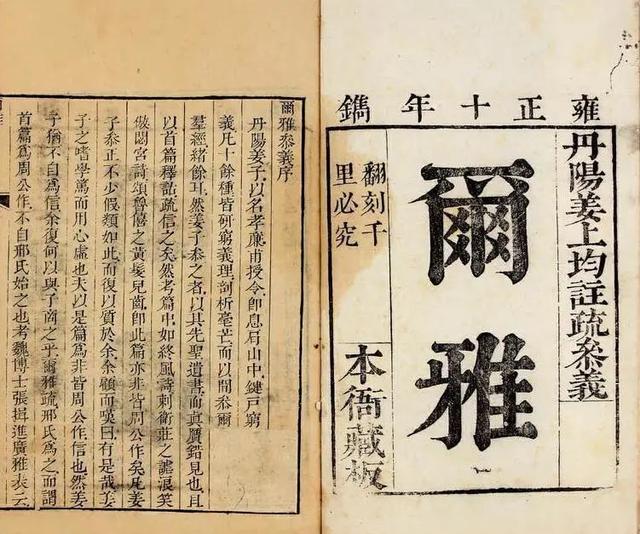 雍正十年鐫
丹陽姜上均註疏叅義
爾雅
翻刻千
里必究
本衙藏板
爾雅叅義序
丹陽姜子以名孝廉甫授令卽息肩山中鍵戸窮
義凡十餘種皆研窮義理剖析毫芒而以間叅爾
羣經緒餘耳然姜子叅之者以其先聖遺書而眞贋錯見也且
以首篇釋詁疏信之矣然考篇中如終風詩刺衛莊之謔浪笑
傲閟宮詩頌魯僖之黃髮兒齒卽此篇亦非皆周公作矣凡姜
子叅正不少假類如此而復以質於余余顧而嘆曰有是哉姜
子之嗜學篤而用心虛也夫以是篇爲非皆周公作信也然姜
子猶不自爲信余復何以與子商之乎爾雅疏邢氏爲之而謂
首篇爲周公作不自邢氏始之也考魏博士張揖進廣雅表云